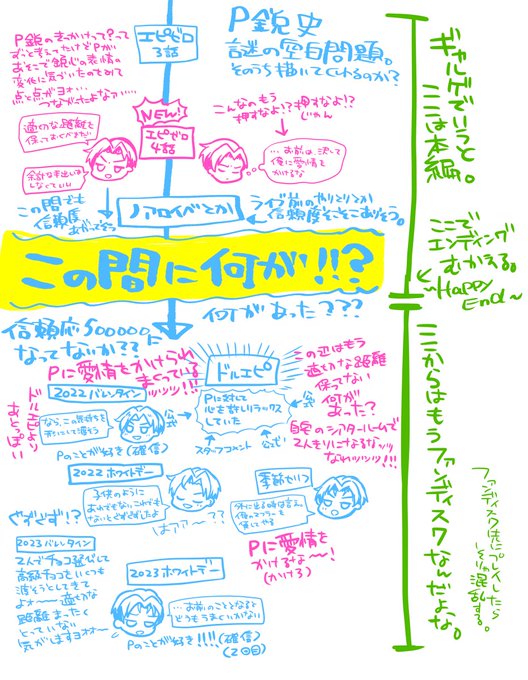 P鋭史
謎の空白問題。
そのうち描いてくれるのか?
エピゼロ
3話
P鋭のきっかけって?って
ずっと考えてたけどPが
あそこで鋭心の表情の
変化に気づいたのもみて
点と点がヨォ…
つながったよなァい…
NEW!
エピゼロ
4話
こんなのもう
押すなよ!?押すなよ!?
じゃん
適切な距離を
保っておくべきだ
余計な手出しは
しなくていい
…お前は、決して
俺に愛情を
かけるな
この間でも
信頼度
あがってそう
ノアロイベとか
ライブ前のやりとりとか
信頼度そこそこありそう。
この間に何が!!!?
何があった???
信頼度500000に
なってないか??
Pに愛情をかけられ
まくっている
ッッッ!!!
ドルエピ
Pに対して
心を許しリラックス
していた
公式
スターツコメント
公式!
この辺はもう
適切な距離
保ってない
何が
あった?
自宅のシアタールームで
2人きりになるなッッ
なわッッッ!!!
2022バレンタイン
ドルエピより
あとっぽい
なら、この気持ちを
Pのことが好き(確信)
2022ホワイトデー
子供のように
はァァ〜??
季節セリフ
外に出る時は言え。
俺のマフラーも
貸してやる
Pに愛情を
かけるなよ〜!
(かけろ)
2023バレンタイン
2人でチョコ選びして
高級チョコをいくつも
渡そうとしてきて
よォ〜適切な
距離まったく
とっていない
気がしますヨォォ〜
2023ホワイトデー
…お前のこととなると
どうもうまくいかない
Pのことが好き!!!!(確信)
(2回目)
ギャルゲでいうと
ここは本編。
ここで
エンディング
むかえる。
〜HAPPY
END〜
ここからはもうファンディスクなんだよな。
ファンディスク先にプレイしたら
そりゃ混乱する。